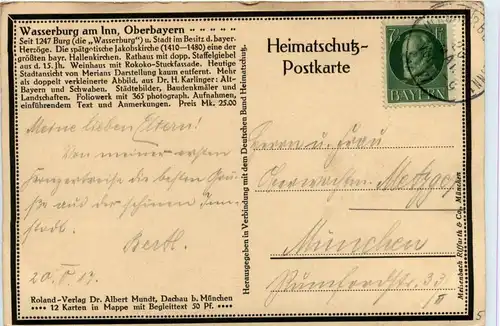 Wasserburg am Inn, Oberbayern
Seit 1247 Burg (die „Wasserburg") u. Stadt im Besitz d. bayer.
Herzöge. Die spätgotische Jakobskirche (1410—1480) eine der
größten bayr. Hallenkirchen. Rathaus mit dopp. Staffelgiebel
aus d. 15. Jh. Weinhaus mit Rokoko-Stuckfassade. Heutige
Stadtansicht von Merians Darstellung kaum entfernt. Mehr
als doppelt verkleinerte Abbild. aus Dr. H. Karlinger: Alt-
Bayern und Schwaben. Städtebilder, Baudenkmäler und
Landschaften. Foliowerk mit 365 photograph. Aufnahmen,
einführendem Text und Anmerkungen. Preis Mk. 25.00
Meine lieben Eltern!
Von meiner ersten
Konzertreise die besten Grü-
ße aus der schönen Inn-
stadt.
Bertl.
Roland-Verlag Dr. Albert Mundt, Dachau b. München
12 Karten in Mappe mit Begleittext 50 Pf.
Herausgegeben in Verbindung mit dem Deutschen Bund Heimatschutz.
Heimatschutz-
Postkarte
BAYERN
Herrn u. Frau
Metzger
München
33
Meisenbach Riffarth & Co., München
5